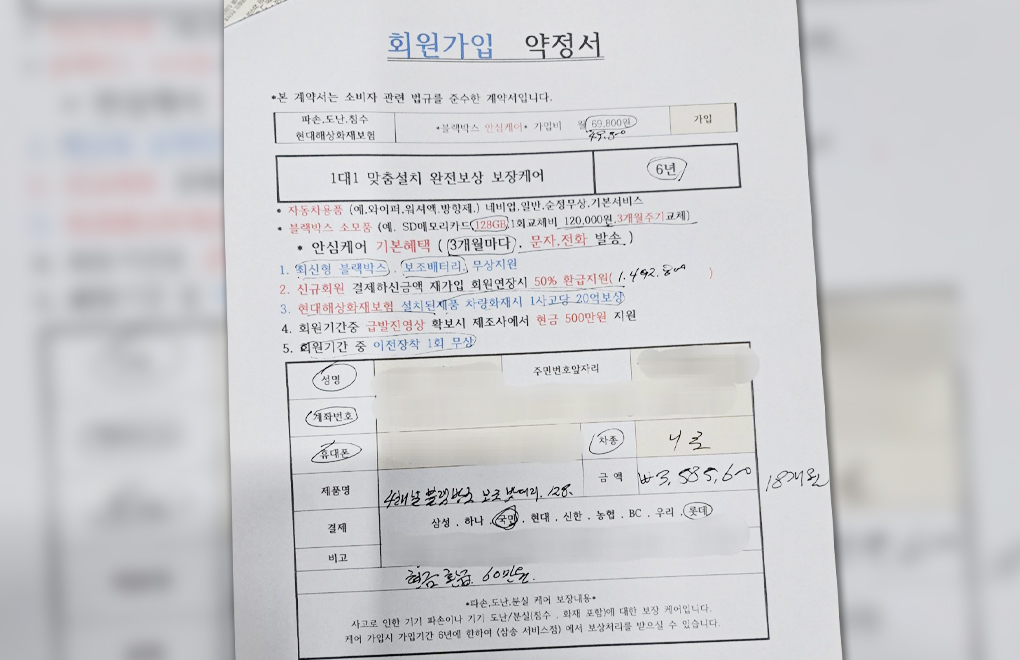 회원가입 약정서
*본 계약서는 소비자 관련 법규를 준수한 계약서입니다.
파손,도난,침수
현대해상화재보험
*블랙박스 안심케어* 가입비 월 69,800원
가입
49,800
1대1 맞춤설치 완전보상 보장케어
6년
• 자동차용품 (예,와이퍼,워셔액,방향제,) 네비업,일반,순정무상,기본서비스
• 블랙박스 소모품 (예. SD메모리카드128GB,1회교체비 120,000원,3개월주기교체)
• 안심케어 기본혜택 ( 3개월마다 , 문자,전화 발송 )
1. 최신형 블랙박스 , 보조배터리, 무상지원
2. 신규회원 결제하신금액 재가입 회원연장시 50% 환급지원( 1,492,800 )
3. 현대해상화재보험 설치된제품 차량화재시 1사고당 20억보상
4. 회원기간중 급발진영상 확보시 제조사에서 현금 500만원 지원
5. 회원기간 중 이전장착 1회 무상
성명
주민번호앞자리
계좌번호
휴대폰
차종
니로
제품명
4채널 블랙박스 보조밧데리. 128.
금 액
₩3,585,600 18개월
결제
삼성 , 하나 , 국민 , 현대 , 신한 , 농협 , BC , 우리 , 롯데
비고
현금 환급. 60만원.
*파손,도난,분실 케어 보장내용*
사고로 인한 기기 파손이나 기기 도난/분실(침수 , 화재 포함)에 대한 보장 케어입니다.
케어 가입시 가입기간 6년에 한하여 (삼송 서비스점) 에서 보상처리를 받으실 수 있습니다.